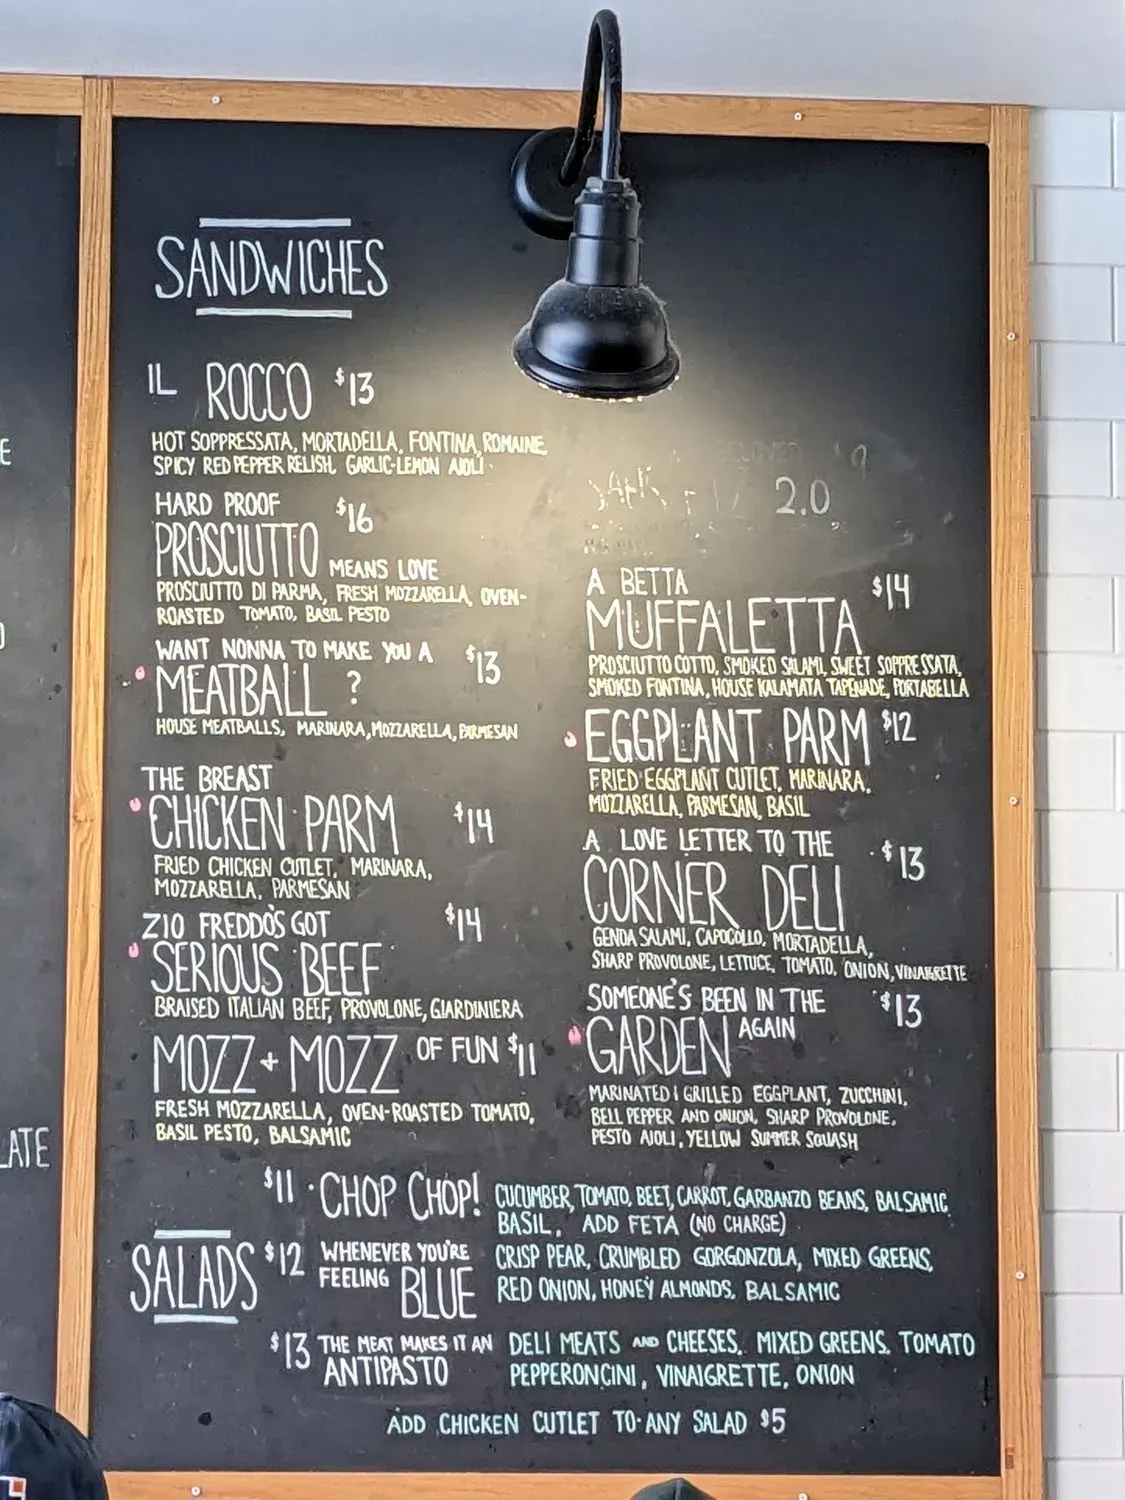 SANDWICHES
IL ROCCO $13
HOT SOPPRESSATA, MORTADELLA, FONTINA, ROMAINE,
SPICY RED PEPPER RELISH, GARLIC-LEMON AIOLI
HARD PROOF $16
PROSCIUTTO MEANS LOVE
PROSCIUTTO DI PARMA, FRESH MOZZARELLA, OVEN-
ROASTED TOMATO, BASIL PESTO
WANT NONNA TO MAKE YOU A $13
MEATBALL ?
HOUSE MEATBALLS, MARINARA, MOZZARELLA, PARMESAN
THE BREAST
CHICKEN PARM $14
FRIED CHICKEN CUTLET, MARINARA,
MOZZARELLA, PARMESAN
ZIO FREDDO'S GOT $14
SERIOUS BEEF
BRAISED ITALIAN BEEF, PROVOLONE, GIARDINIERA
MOZZ + MOZZ OF FUN $11
FRESH MOZZARELLA, OVEN-ROASTED TOMATO,
BASIL PESTO, BALSAMIC
2.0
A BETTA $14
MUFFALETTA
PROSCIUTTO COTTO, SMOKED SALAMI, SWEET SOPPRESSATA,
SMOKED FONTINA, HOUSE KALAMATA TAPENADE, PORTABELLA
EGGPLANT PARM $12
FRIED EGGPLANT CUTLET, MARINARA,
MOZZARELLA, PARMESAN, BASIL
A LOVE LETTER TO THE $13
CORNER DELI
GENOA SALAMI, CAPOCOLLO, MORTADELLA,
SHARP PROVOLONE, LETTUCE, TOMATO, ONION, VINAIGRETTE
SOMEONE'S BEEN IN THE $13
GARDEN AGAIN
MARINATED & GRILLED EGGPLANT, ZUCCHINI,
BELL PEPPER AND ONION, SHARP PROVOLONE,
PESTO AIOLI, YELLOW SUMMER SQUASH
SALADS
$11 CHOP CHOP! CUCUMBER, TOMATO, BEET, CARROT, GARBANZO BEANS, BALSAMIC,
BASIL, ADD FETA (NO CHARGE)
$12 WHENEVER YOU'RE CRISP PEAR, CRUMBLED GORGONZOLA, MIXED GREENS,
FEELING BLUE RED ONION, HONEY ALMONDS, BALSAMIC
$13 THE MEAT MAKES IT AN DELI MEATS AND CHEESES, MIXED GREENS, TOMATO
ANTIPASTO PEPPERONCINI, VINAIGRETTE, ONION
ADD CHICKEN CUTLET TO ANY SALAD $5